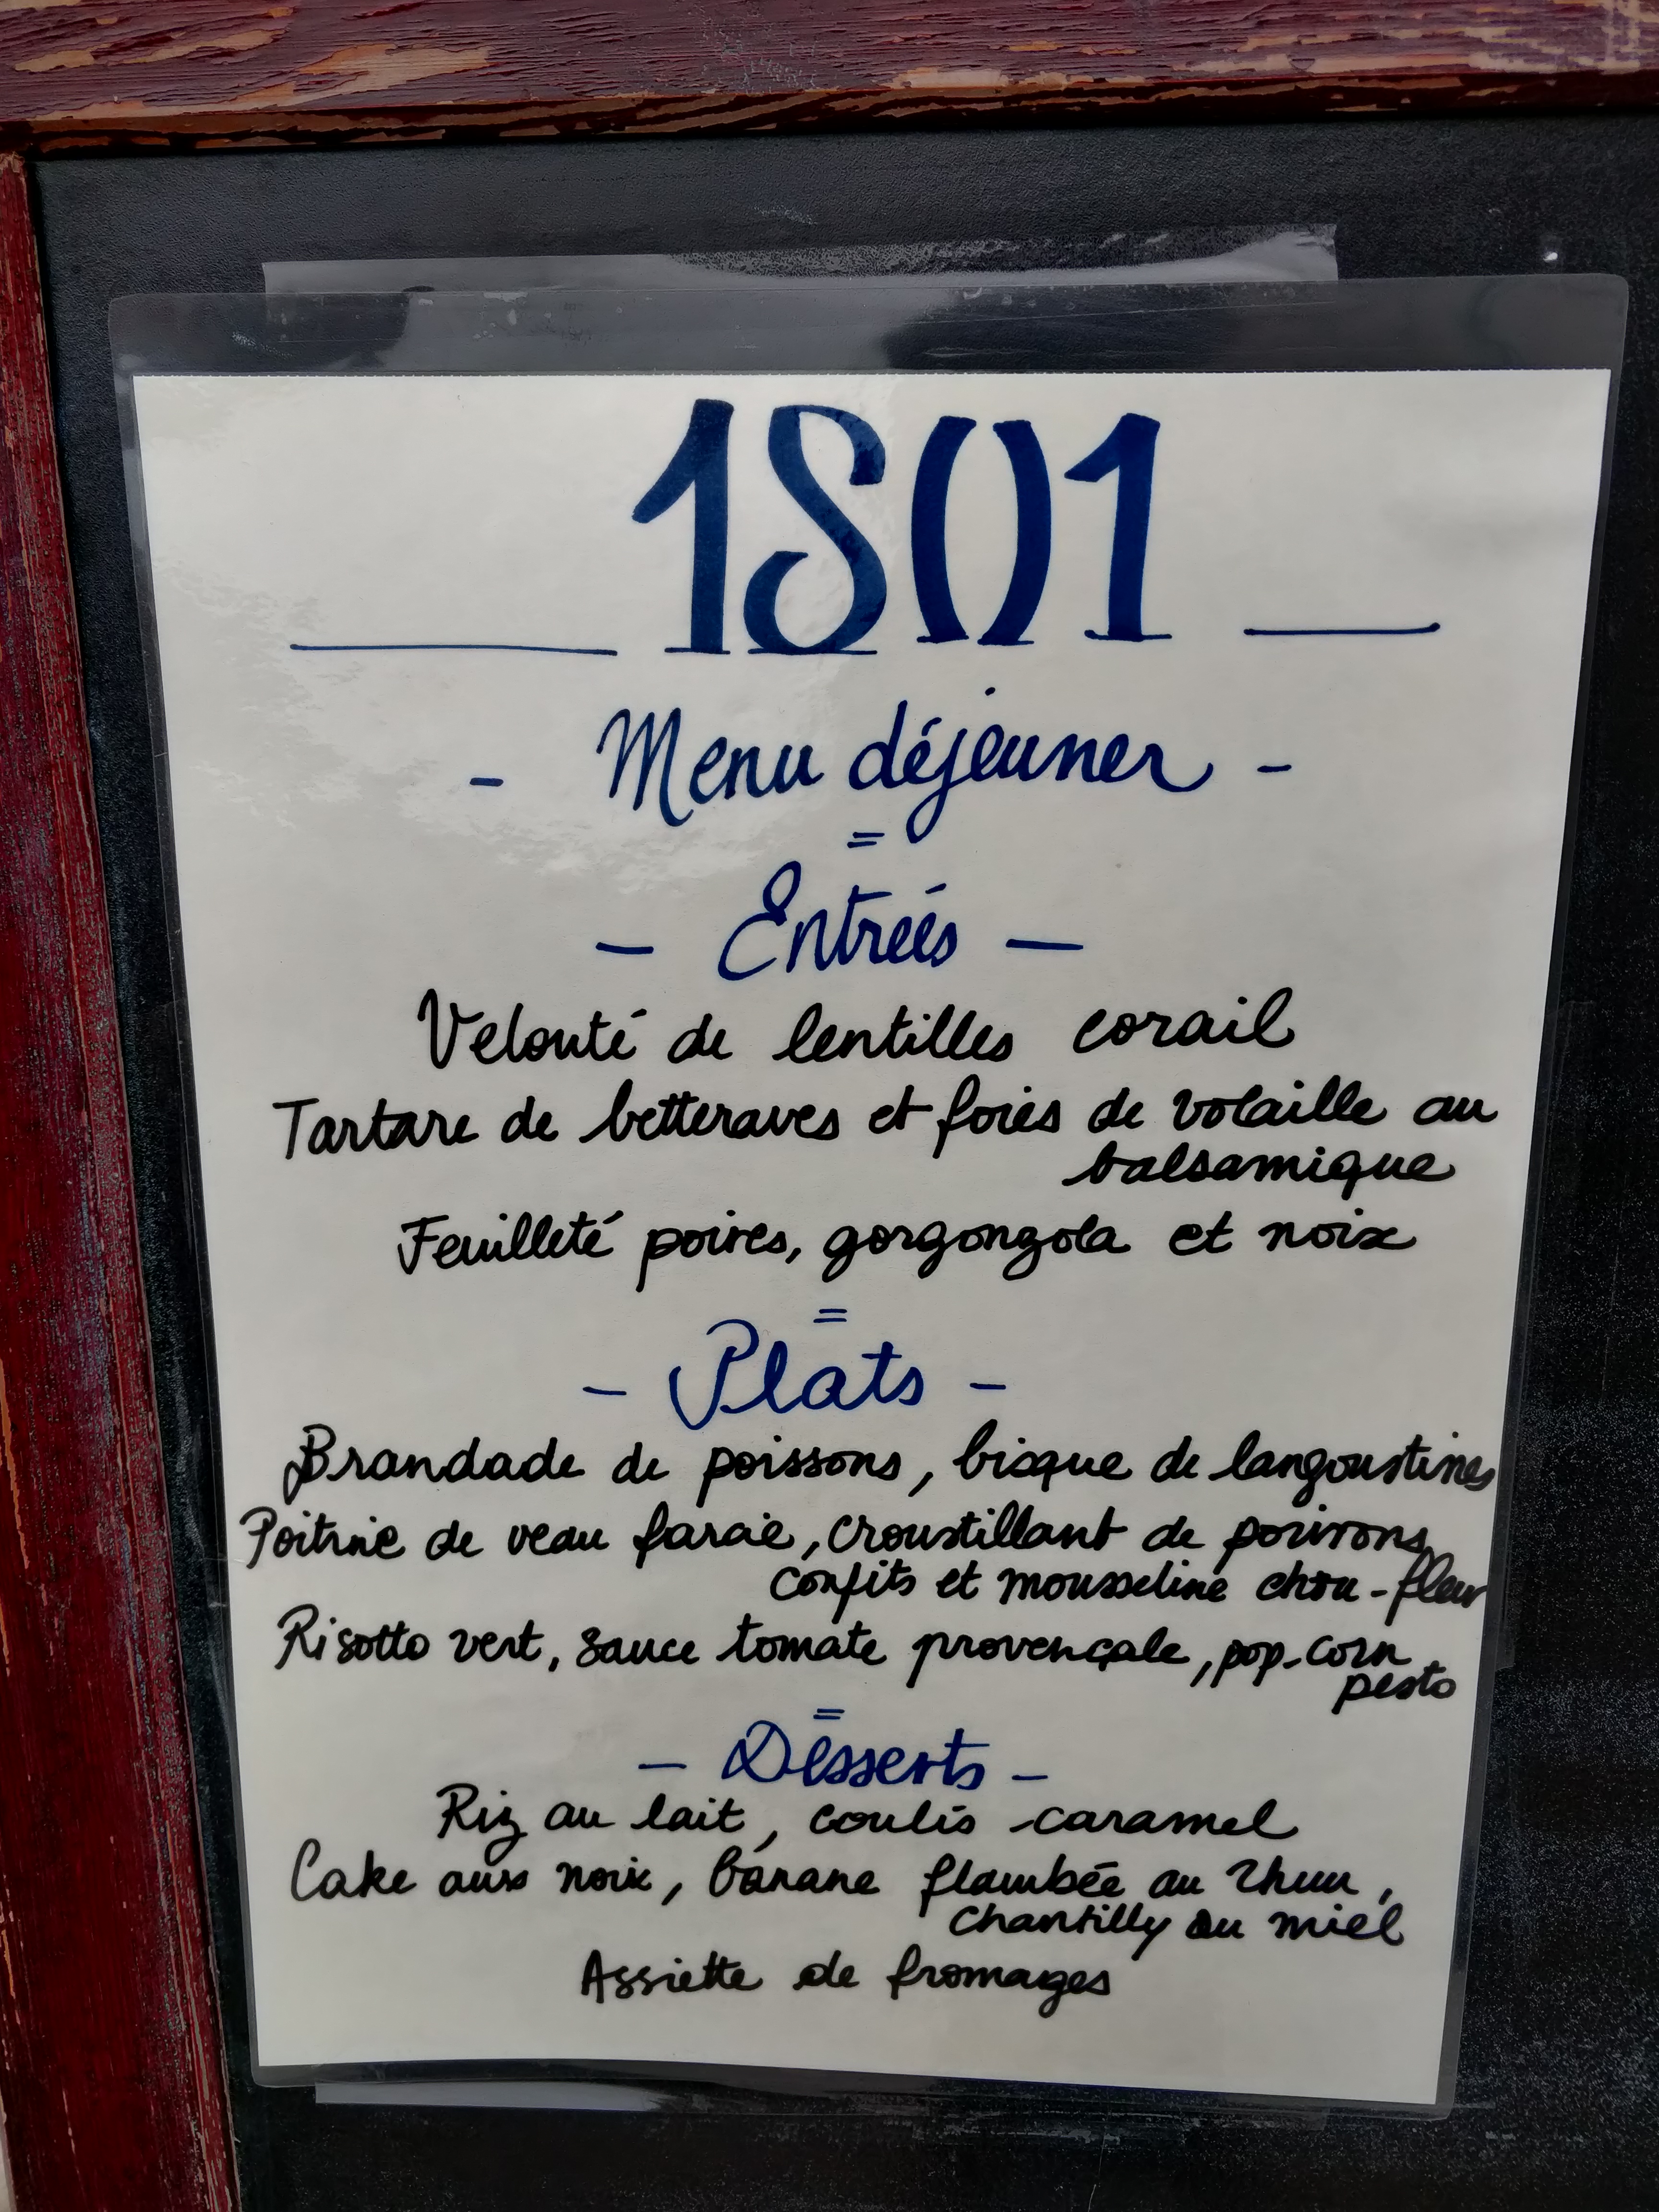 1801
- Menu déjeuner -
=
- Entrées -
Velouté de lentilles corail
Tartare de betteraves et foies de volaille au
balsamique
Feuilleté poires, gorgongola et noix
=
- Plats -
Brandade de poissons, bisque de langoustines
Poitrine de veau farcie, croustillant de poivrons
confits et mousseline chou-fleur
Risotto vert, sauce tomate provençale, pop-corn
pesto
=
- Desserts -
Riz au lait, coulis caramel
Cake aux noix, banane flambée au rhum,
chantilly au miel
Assiette de fromages